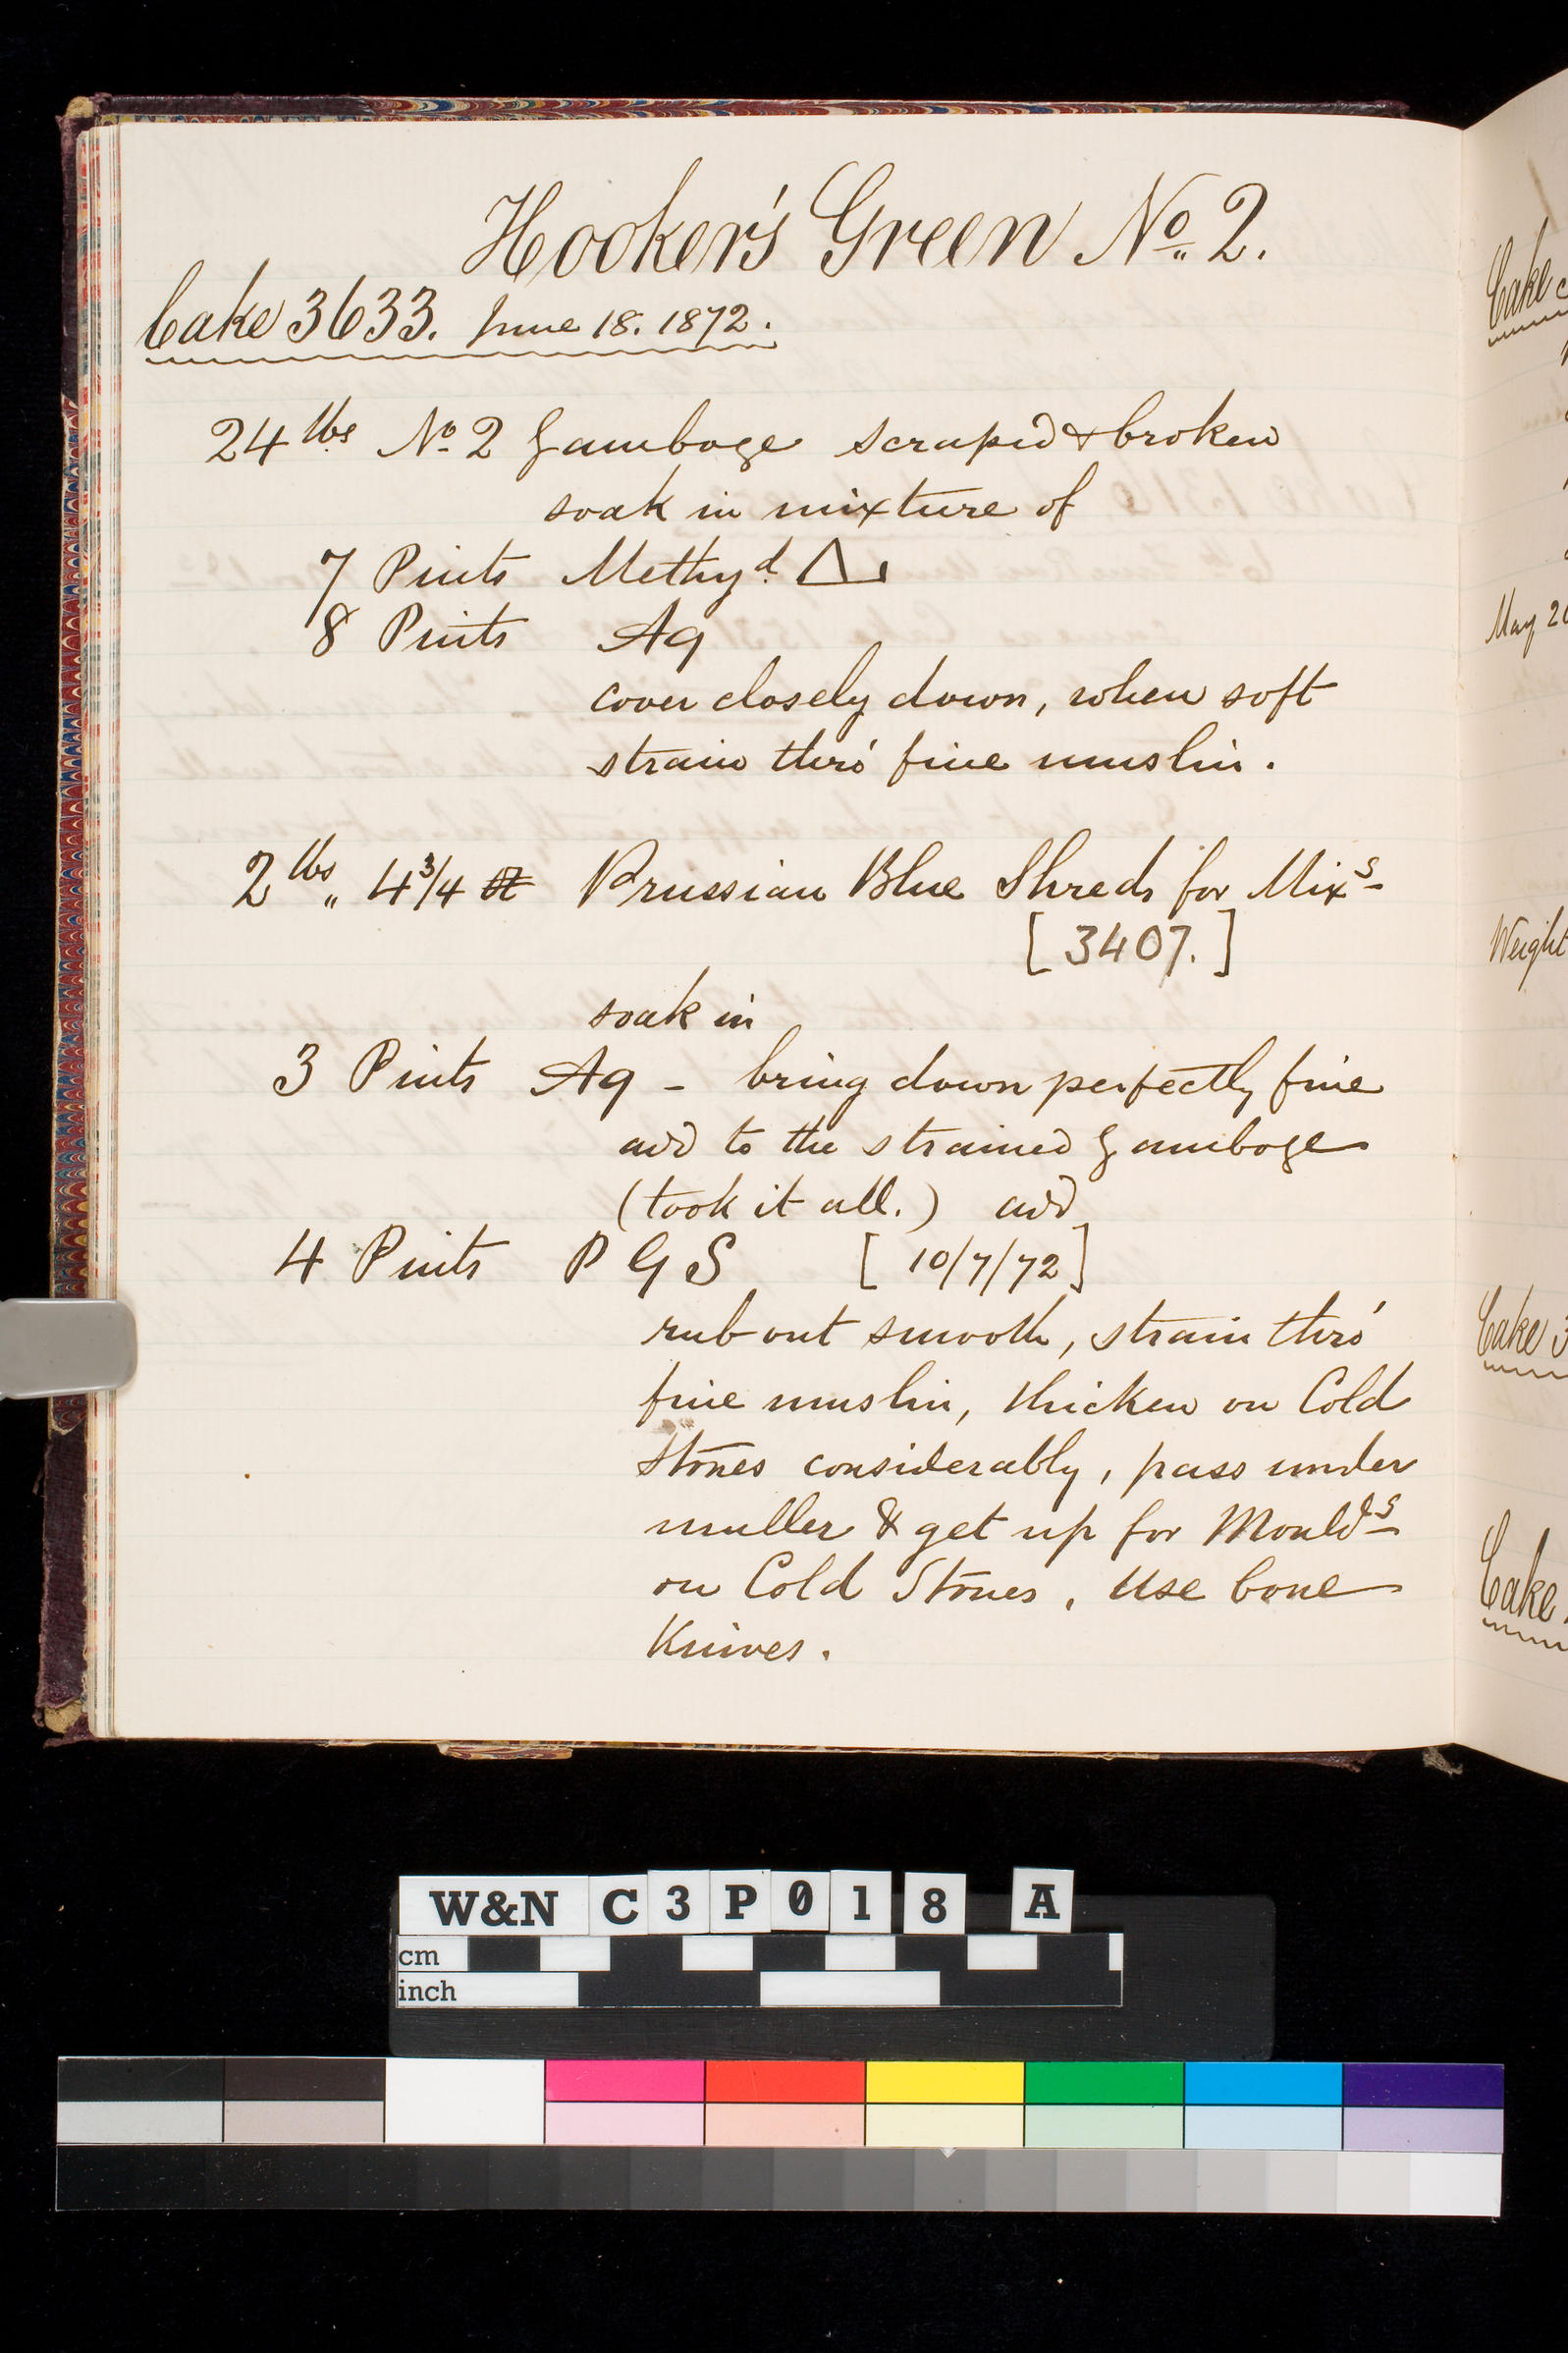 Hooker's Green No. 2.
Cake 3633. June 18. 1872.
24 lbs No 2 Gamboge scraped & broken
soak in mixture of
7 Pints Methyd.
8 Pints Aq
cover closely down, when soft
strain thro' fine muslin.
2 lbs „ 4 3/4 Prussian Blue Shreds for Mixs
[3407.]
soak in
3 Pints Aq - bring down perfectly fine
add to the strained Gamboge
(took it all.) add
4 Pints P G S [10/7/72]
rub out smooth, strain thro'
fine muslin, thicken on Cold
Stones considerably, pass under
muller & get up for Moulds
on Cold Stones. Use bone
Knives.
Cake
May 20
Weight
Cake 3
Cake
W&N C3P018 A
cm
inch